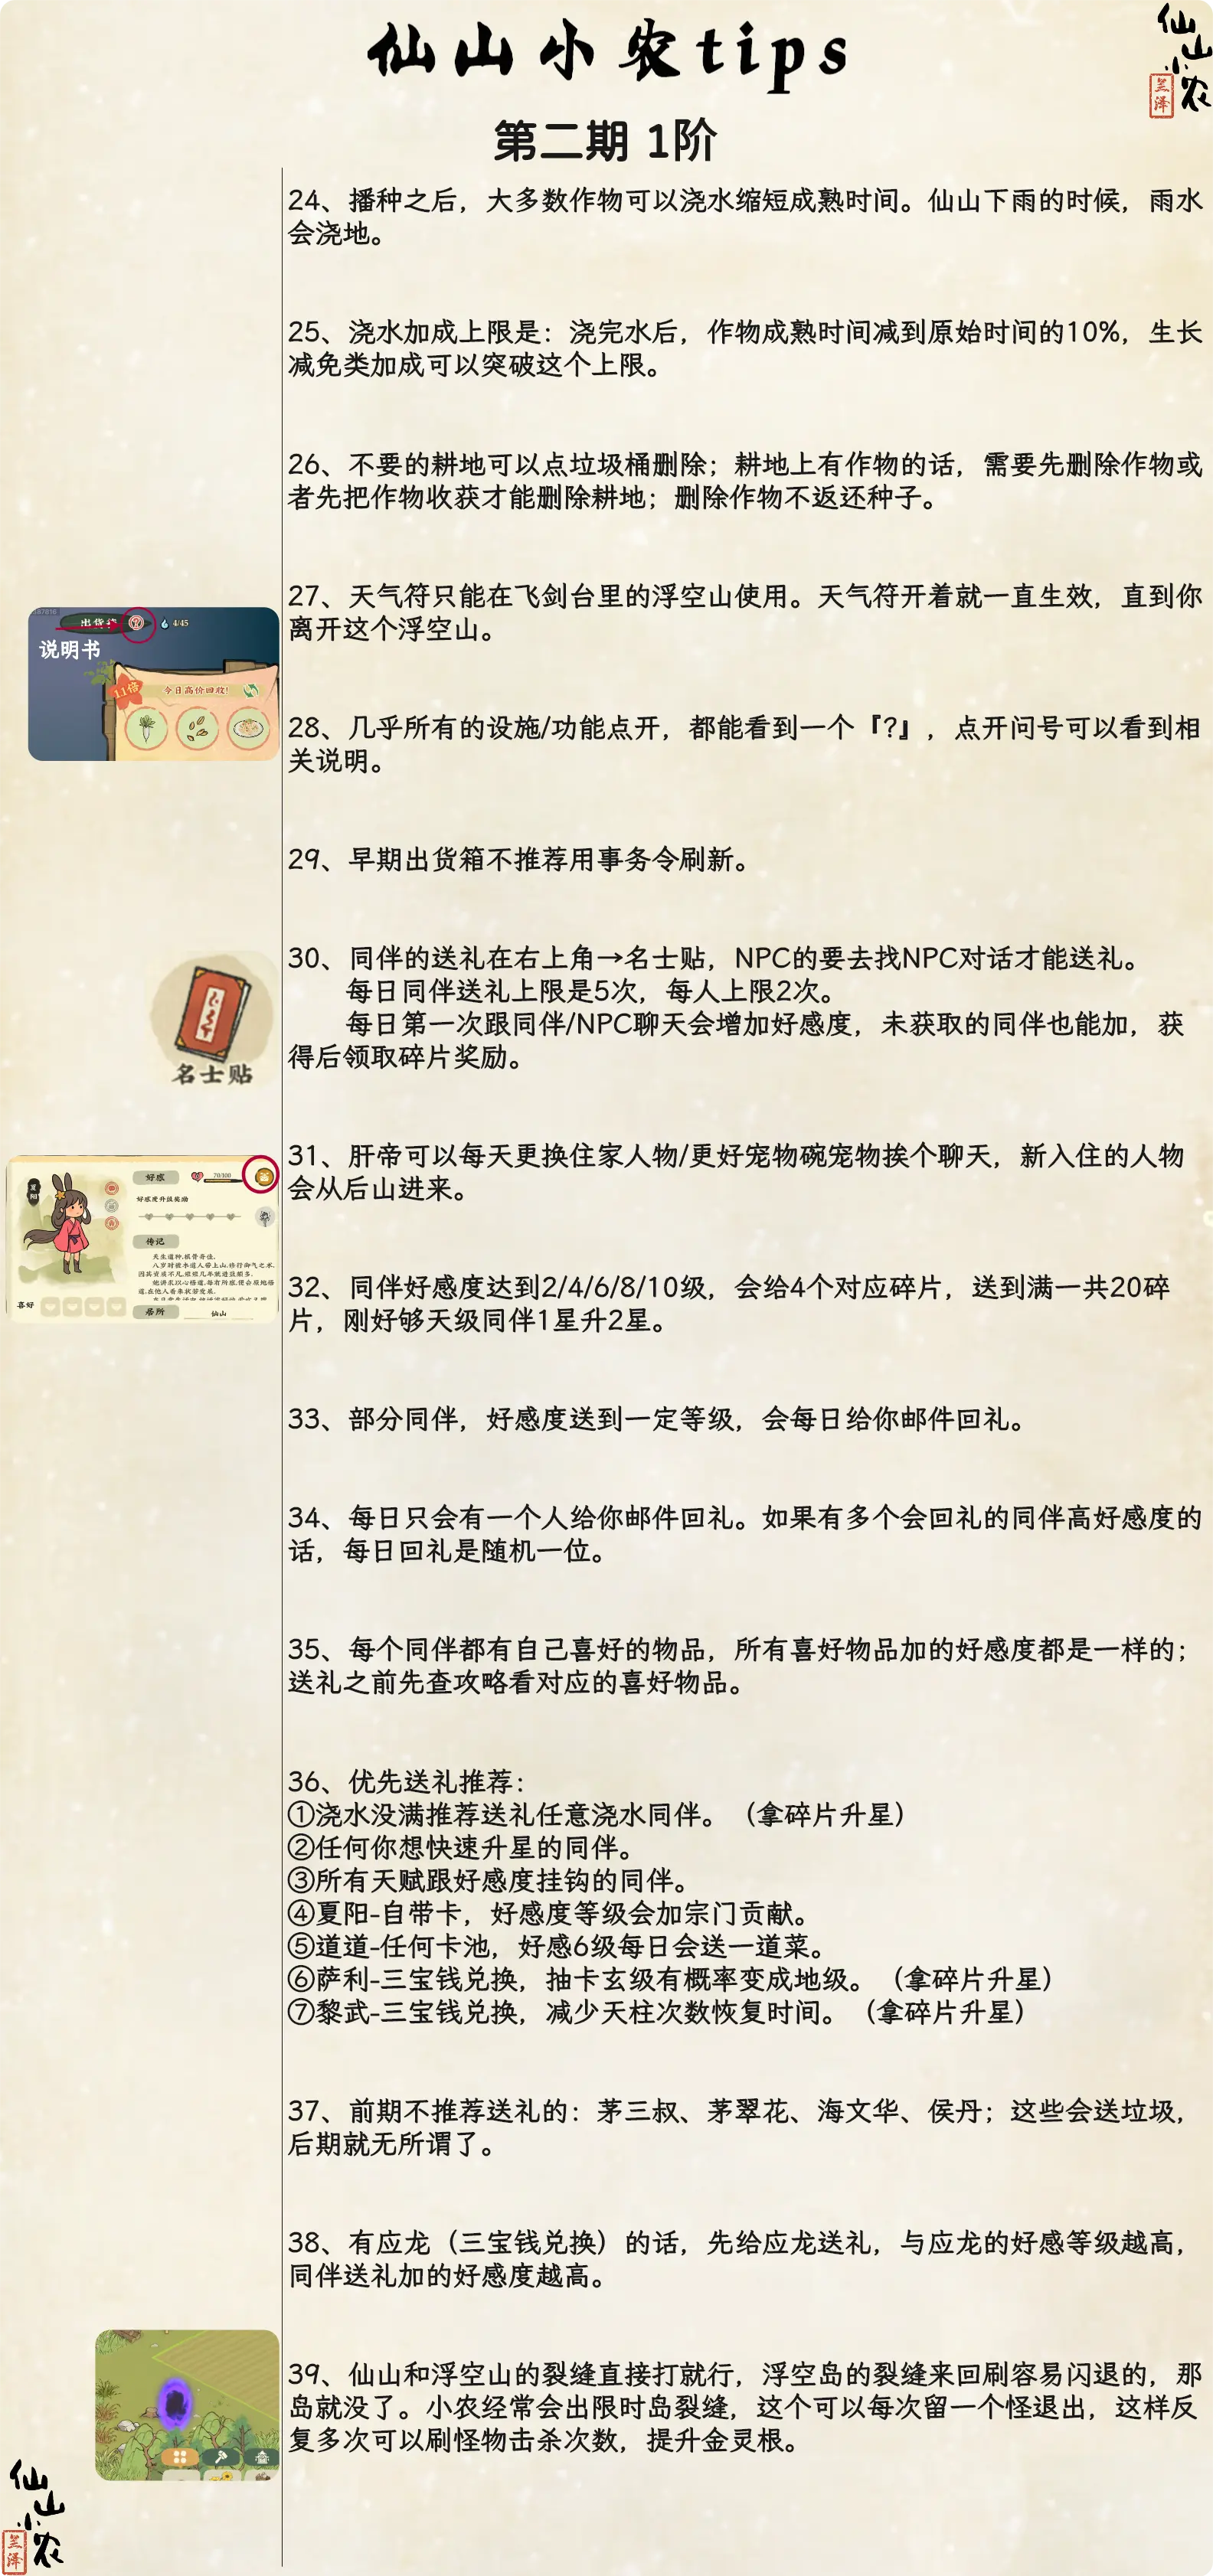 仙山小农tips
仙山小农
兰泽
第二期 1阶
24、播种之后，大多数作物可以浇水缩短成熟时间。仙山下雨的时候，雨水
会浇地。
25、浇水加成上限是：浇完水后，作物成熟时间减到原始时间的10%，生长
减免类加成可以突破这个上限。
26、不要的耕地可以点垃圾桶删除；耕地上有作物的话，需要先删除作物或
者先把作物收获才能删除耕地；删除作物不返还种子。
27、天气符只能在飞剑台里的浮空山使用。天气符开着就一直生效，直到你
离开这个浮空山。
4/45
说明书
1.1倍
今日高价回收!
28、几乎所有的设施/功能点开，都能看到一个『?』，点开问号可以看到相
关说明。
29、早期出货箱不推荐用事务令刷新。
30、同伴的送礼在右上角→名士贴，NPC的要去找NPC对话才能送礼。
每日同伴送礼上限是5次，每人上限2次。
每日第一次跟同伴/NPC聊天会增加好感度，未获取的同伴也能加，获
得后领取碎片奖励。
名士贴
31、肝帝可以每天更换住家人物/更好宠物碗宠物挨个聊天，新入住的人物
会从后山进来。
夏阳
好感
70/100
好感度升级奖励
传记
喜好
居所
仙山
32、同伴好感度达到2/4/6/8/10级，会给4个对应碎片，送到满一共20碎
片，刚好够天级同伴1星升2星。
33、部分同伴，好感度送到一定等级，会每日给你邮件回礼。
34、每日只会有一个人给你邮件回礼。如果有多个会回礼的同伴高好感度的
话，每日回礼是随机一位。
35、每个同伴都有自己喜好的物品，所有喜好物品加的好感度都是一样的；
送礼之前先查攻略看对应的喜好物品。
36、优先送礼推荐：
①浇水没满推荐送礼任意浇水同伴。（拿碎片升星）
②任何你想快速升星的同伴。
③所有天赋跟好感度挂钩的同伴。
④夏阳-自带卡，好感度等级会加宗门贡献。
⑤道道-任何卡池，好感6级每日会送一道菜。
⑥萨利-三宝钱兑换，抽卡玄级有概率变成地级。（拿碎片升星）
⑦黎武-三宝钱兑换，减少天柱次数恢复时间。（拿碎片升星）
37、前期不推荐送礼的：茅三叔、茅翠花、海文华、侯丹；这些会送垃圾，
后期就无所谓了。
38、有应龙（三宝钱兑换）的话，先给应龙送礼，与应龙的好感等级越高，
同伴送礼加的好感度越高。
39、仙山和浮空山的裂缝直接打就行，浮空岛的裂缝来回刷容易闪退的，那
岛就没了。小农经常会出限时岛裂缝，这个可以每次留一个怪退出，这样反
复多次可以刷怪物击杀次数，提升金灵根。
仙山小农
兰泽